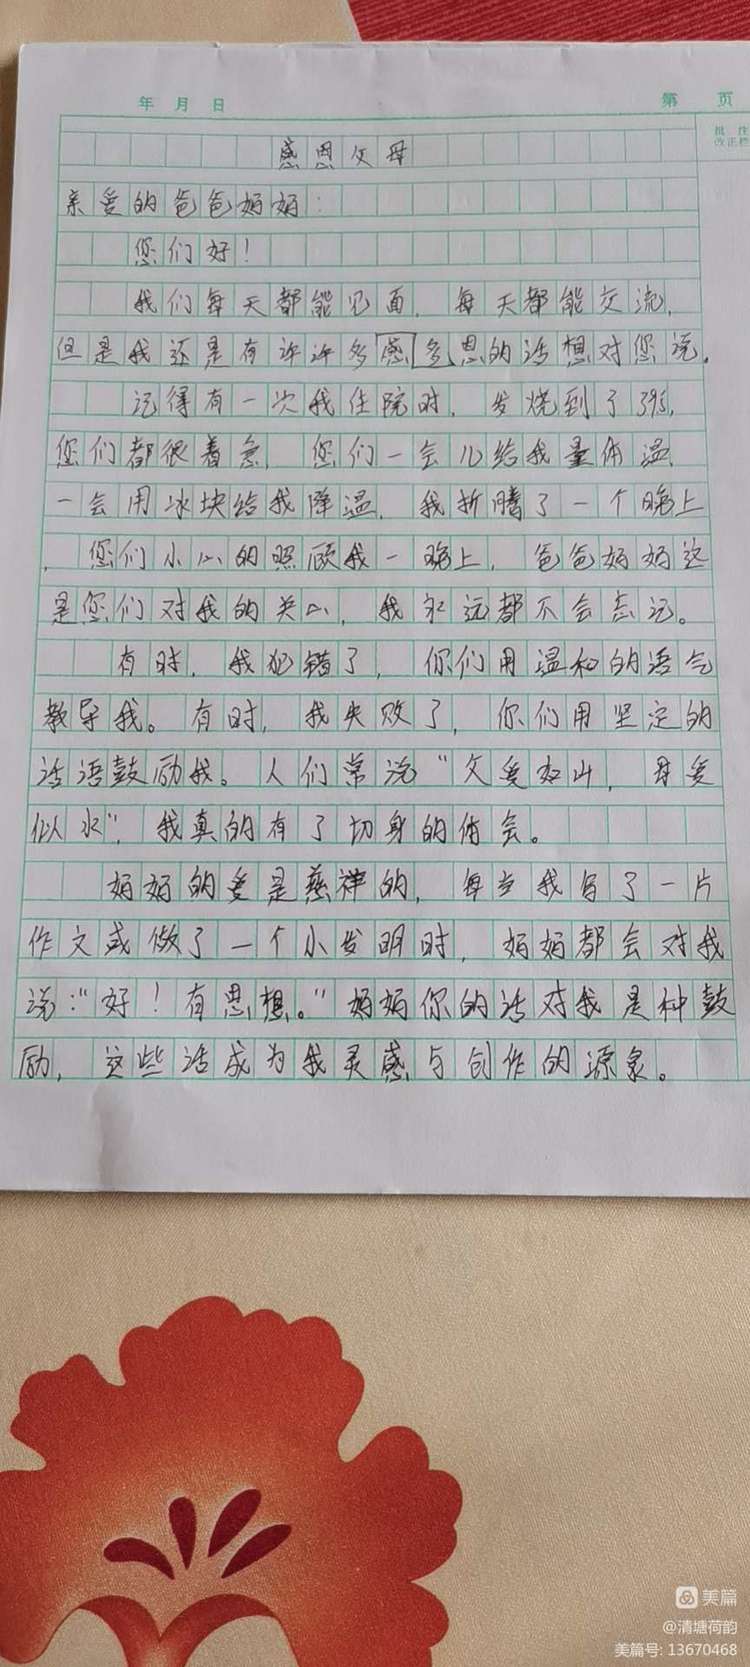 年 月 日
第 页
批注
感恩父母
亲爱的爸爸妈妈：
您们好！
我们每天都能见面，每天都能交流，
但是我还是有许许多感多恩的话想对您说。
记得有一次我住院时，发烧到了395，
您们都很着急，您们一会儿给我量体温，
一会用冰块给我降温，我折腾了一个晚上
，您们小心的照顾我一晚上，爸爸妈妈这
是您们对我的关心，我永远都不会忘记。
有时，我犯错了，你们用温和的语气
教导我。有时，我失败了，你们用坚定的
话语鼓励我。人们常说“父爱如山，母爱
似水”，我真的有了切身的体会。
妈妈的爱是慈祥的，每当我写了一片
作文或做了一个小发明时，妈妈都会对我
说：“好！有思想。”妈妈你的话对我是种鼓
励，这些话成为我灵感与创作的源泉。
美篇
@清塘荷韵
美篇号: 13670468